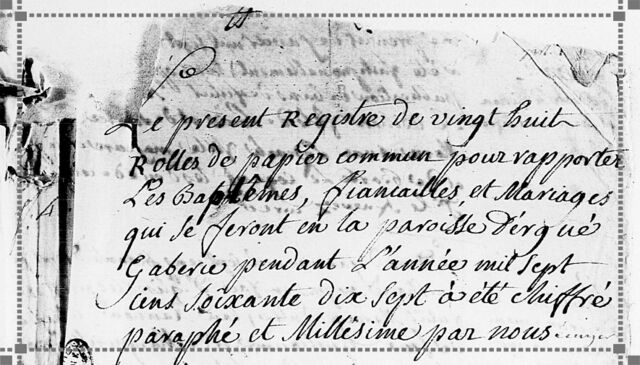 Le present Registre de vingt huit
Rolles de papier commun pour rapporter
Les Baptêmes, fiancailles, et Mariages
qui se feront en la paroisse d'ergué
Gaberic pendant L'année mil sept
cens soixante dix sept a été chiffré
paraphé et Millésime par nous